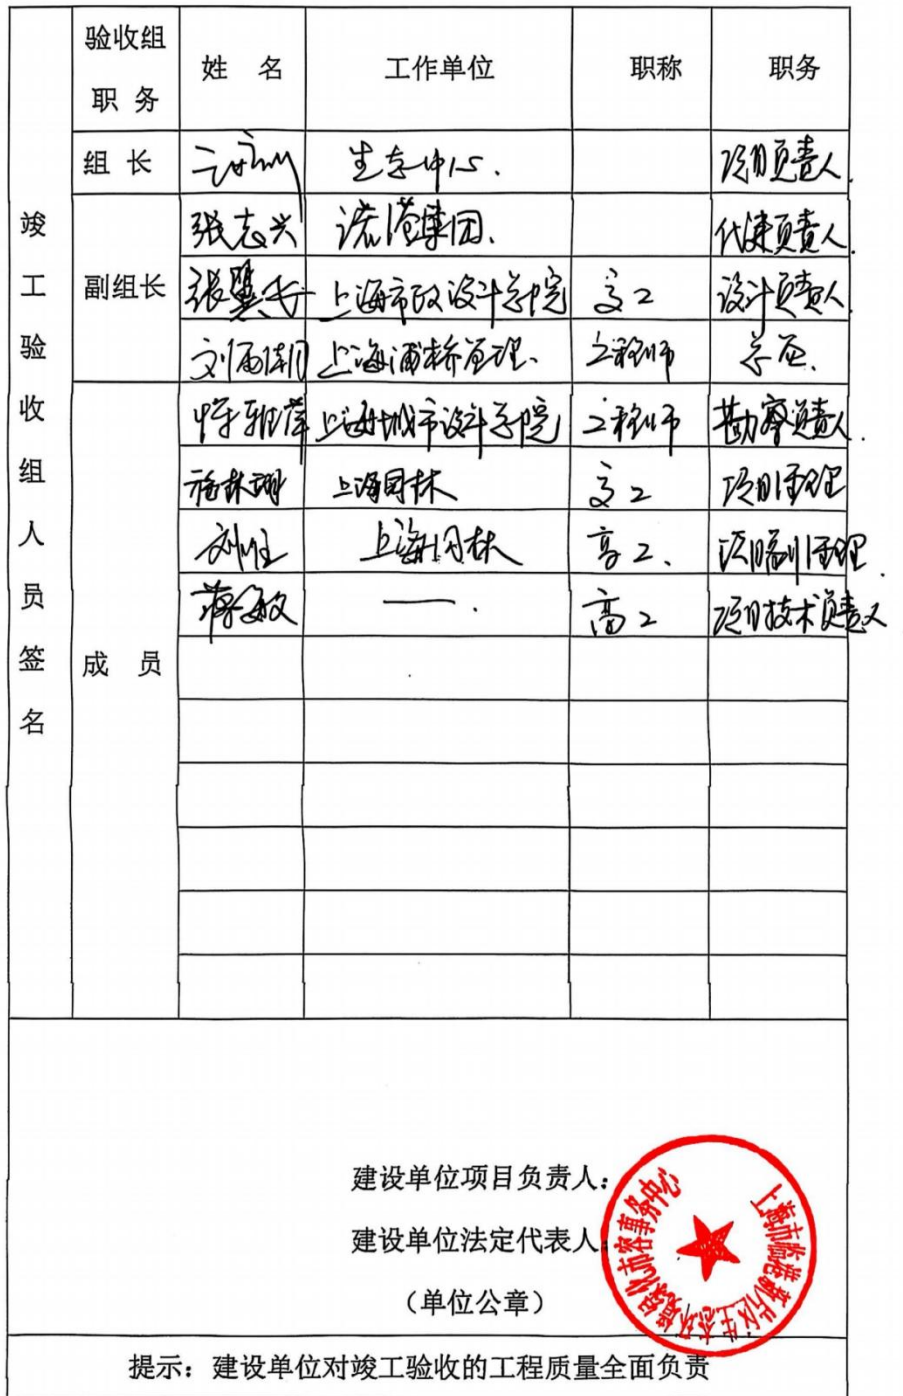 验收组职务 姓名 工作单位 职称 职务
竣工验收组人员签名
组长 项目负责人.
副组长
张志兴 港集团. 代建负责人.
张翼 上海市政设计总院 高工 设计负责人
刘 上海浦桥监理. 工程师 总监.
成员
上海城市设计总院 工程师 勘察负责人.
上海园林 高工 项目经理
刘 上海园林 高工. 项目副经理.
蒋 —. 高工 项目技术负责人
建设单位项目负责人:
建设单位法定代表人:
(单位公章)
上海市临港新片区生态环境绿化市容事务中心
提示:建设单位对竣工验收的工程质量全面负责